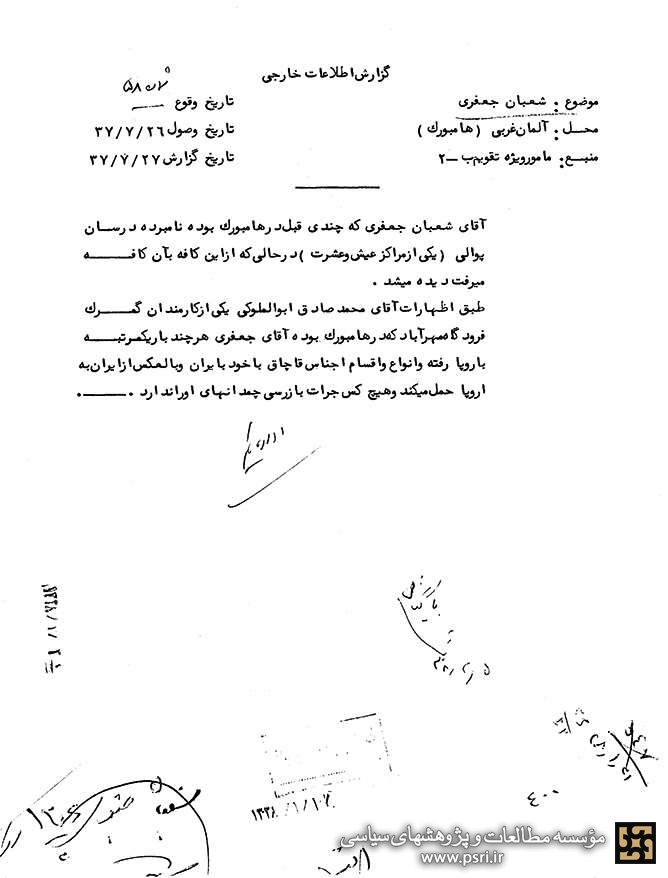 گزارش اطلاعات خارجی
موضوع : شعبان جعفری
تاریخ وقوع
محل : آلمان غربی ( هامبورك )
تاریخ وصول ۳۷/۷/۲۶
منبع : مامور ویژه تقویم ب -۲
تاریخ گزارش ۳۷/۷/۲۷
آقای شعبان جعفری که چندی قبل در هامبورك بوده نامبرده در سان
پوالی ( یکی از مراکز عیش و عشرت ) در حالی که از این کافه بآن کافه
میرفت دیده میشد .
طبق اظهارات آقای محمد صادق ابوالملوکی یکی از کارمندان گمرك
فرودگاه مهرآباد که در هامبورك بوده آقای جعفری هر چند بار یکمرتبه
باروپا رفته و انواع و اقسام اجناس قاچاق با خود بایران و بالعکس از ایران به
اروپا حمل میکند و هیچ کس جرات بازرسی چمدانهای او را ندارد .
۱۳۳۸/۱/۱۰
۴۰۰
مؤسسه مطالعات و پژوهشهای سیاسی
www.psri.ir